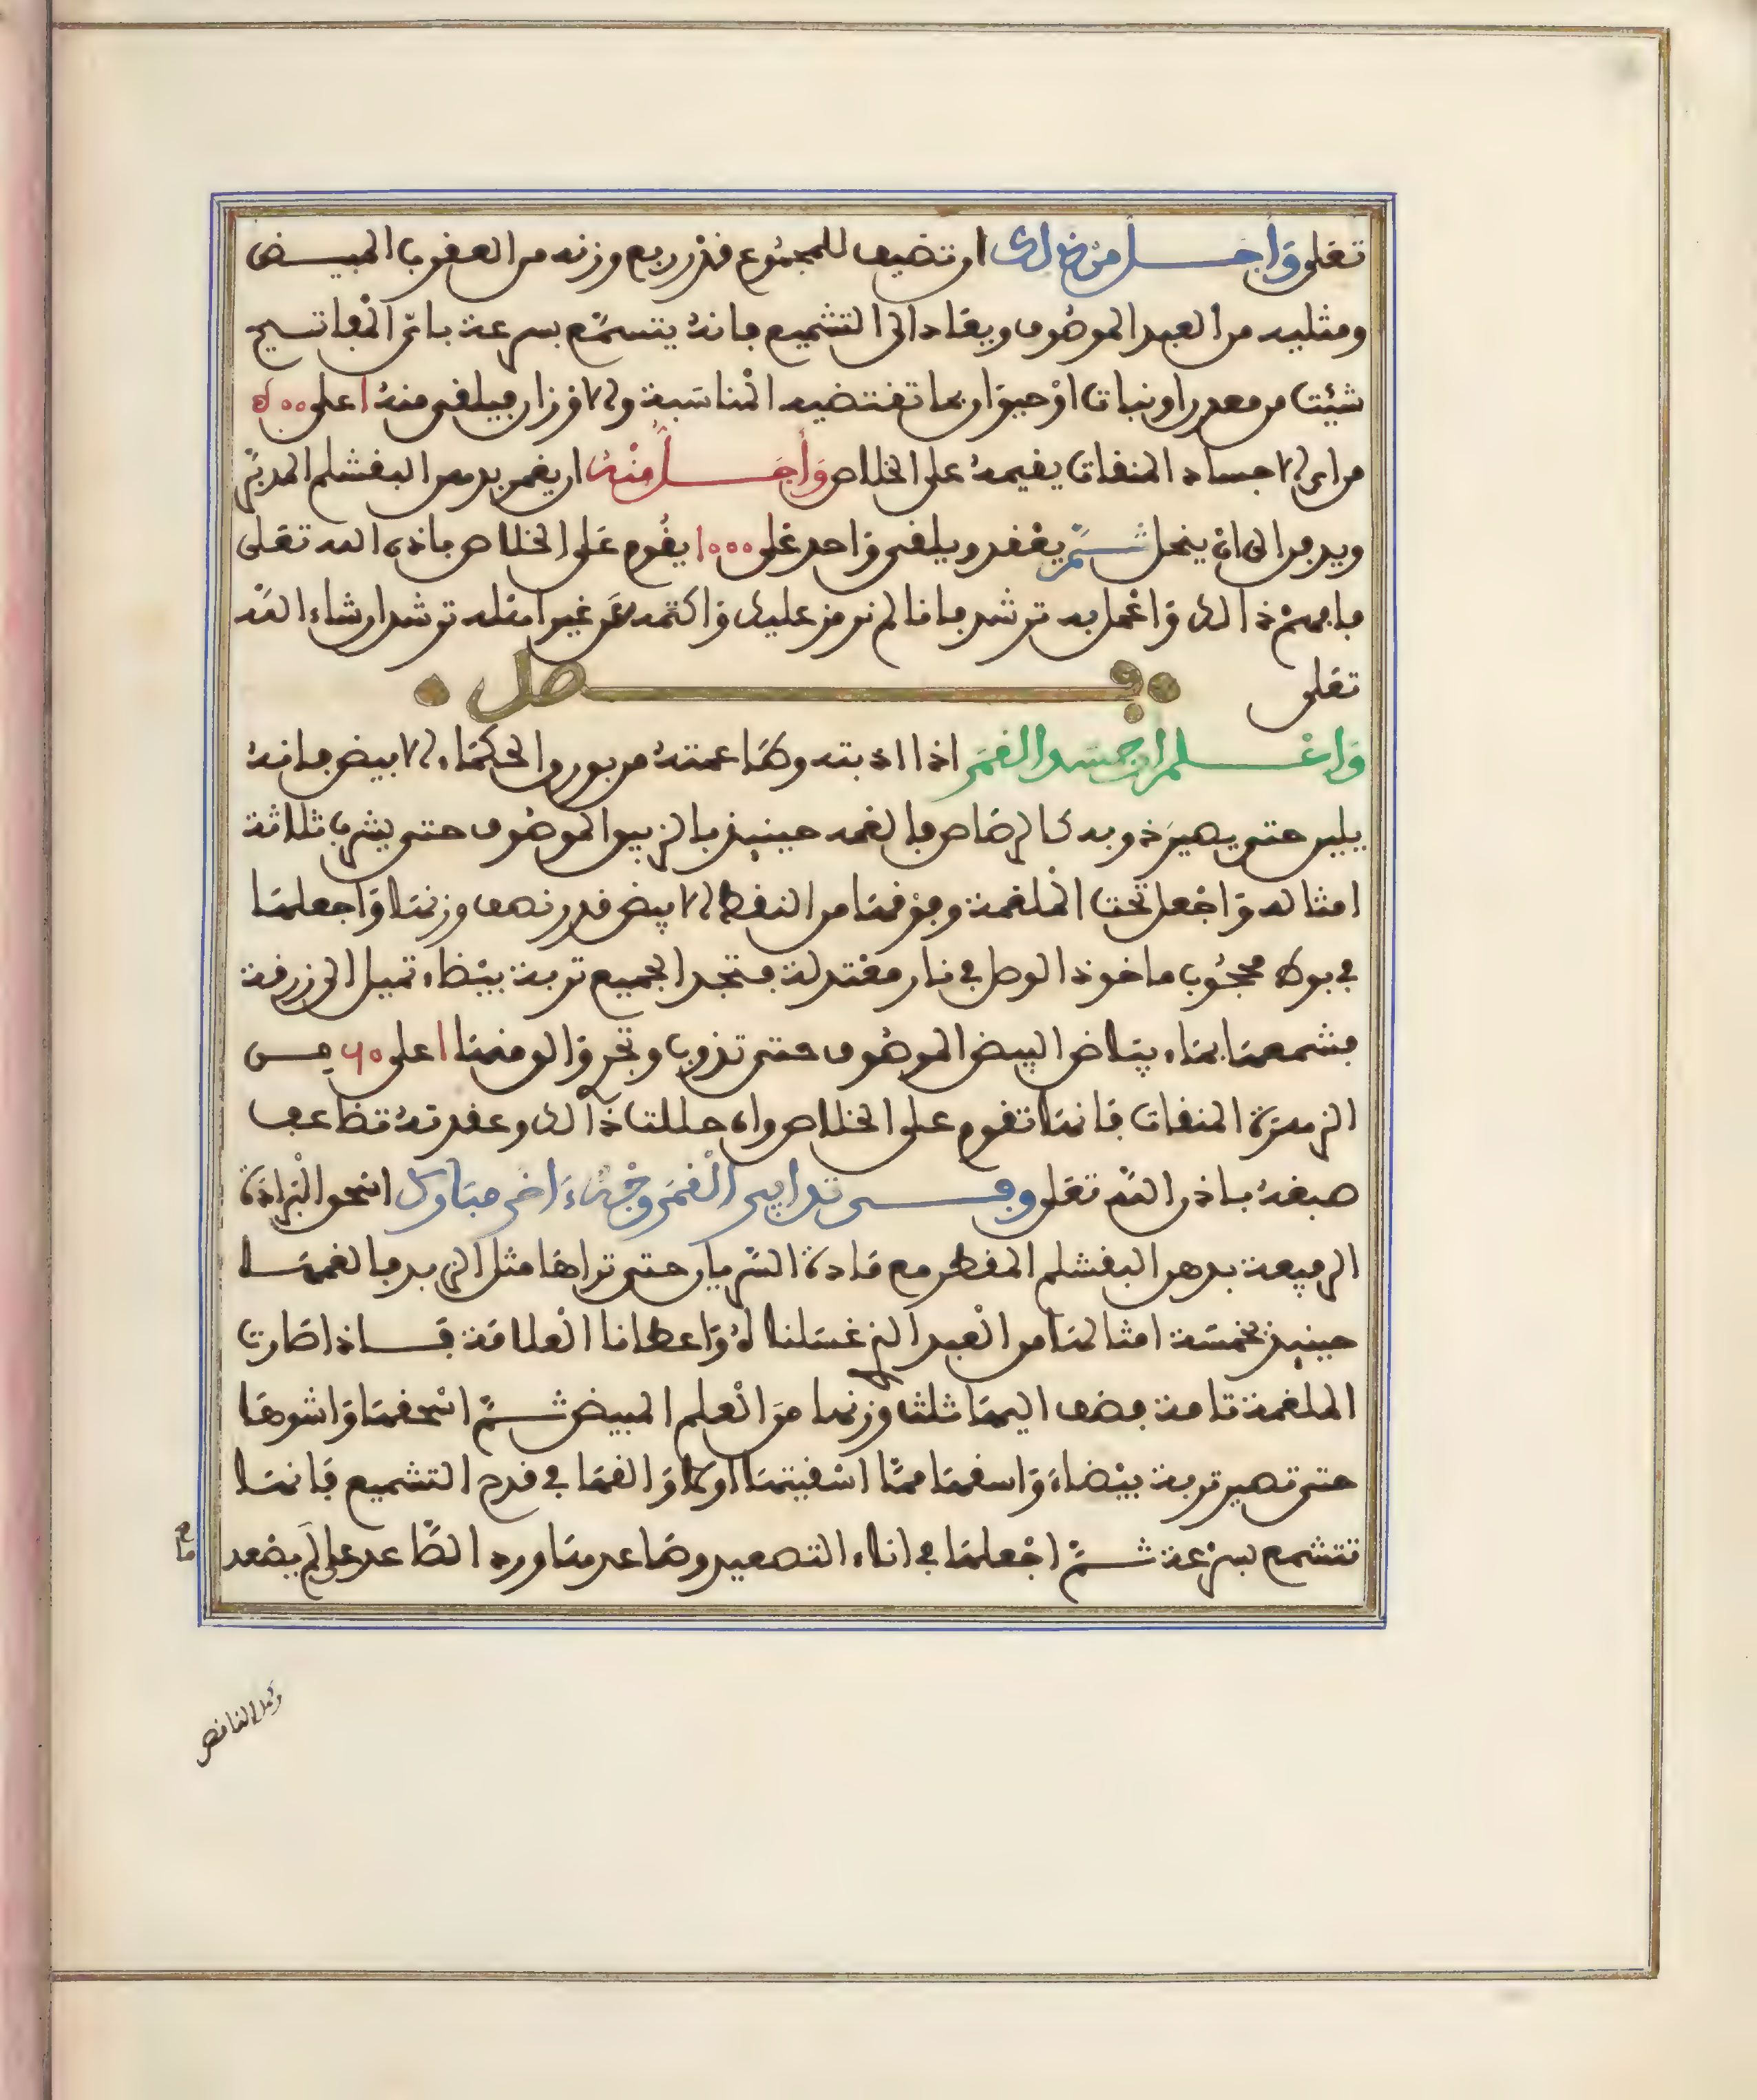 تعلى وأجـــل من ذلك ان تضيف للمجموع قدر ربع وزنه من العقرب المبيـــض
ومثليه من العبد الموصوف ويعاد الى التشميع فانه يتشمع بسرعة باى المفاتيح
شئت من معدن او نبات او حيوان بما تقتضيه المناسبة والاوزان فيلقى منه ١ على ٥٠٠
من اى الاجساد المنقات يقيمه على الخلاص وأجـــل منه ان يغمر بدهن البقشلم المدبر
ويدفن الى ان ينحل ثـــم يعقد ويلقى واحد على ١٠٠٠ يقوم على الخلاص باذن الله تعلى
فافهم ذالك واعمل به ترشد فانا لم نرمز عليك واكتمه عن غير اهله ترشد ان شاء الله
تعلى
فـــصل
واعـــلم ان جسد القمر اذا اذبته وطاعمته من بورق الحكماء الابيض فانه
يلين حتى يصير ذوبه كالرصاص فالغمه حينيذ بالزيبق الموصوف حتى يشرب ثلاثة
امثاله واجعل تحت الملغمة وفوقها من النفط الابيض قدر نصف وزنها واجعلها
في بوط محجوب ماخوذ الوصل في نار معتدلة فتجد الجميع تربة بيضاء تميل الى زرقة
فشمعها بماء بياض البيض الموصوف حتى تذوب وتجرى والق منها ١ على ٦٠ مـــن
الزهرة المنقات فانها تقوم على الخلاص وان حللت ذالك وعقدته تضاعف
صبغه باذن الله تعلى وفـــى تدابير القمر وجه ءاخر مبارك اسحق البرادة
الرفيعة بدهن البقشلم المقطر مع مادة السريان حتى تراها مثل الزبد فالغمهـــا
حينيذ بخمسة امثالها من العبد الذى غسلناه واعطانا العلامة فـــاذا صارت
الملغمة تامة فضف اليها ثلث وزنها من العلم المبيض ثـــم اسحقها واشوها
حتى تصير تربة بيضاء واسقها مما اسقيتها اولا والقها في قدح التشميع فانهـــا
تتشمع بسرعة ثـــم اجعلها في اناء التصعيد وصاعدها ورد الصاعد على ما لم يصعد